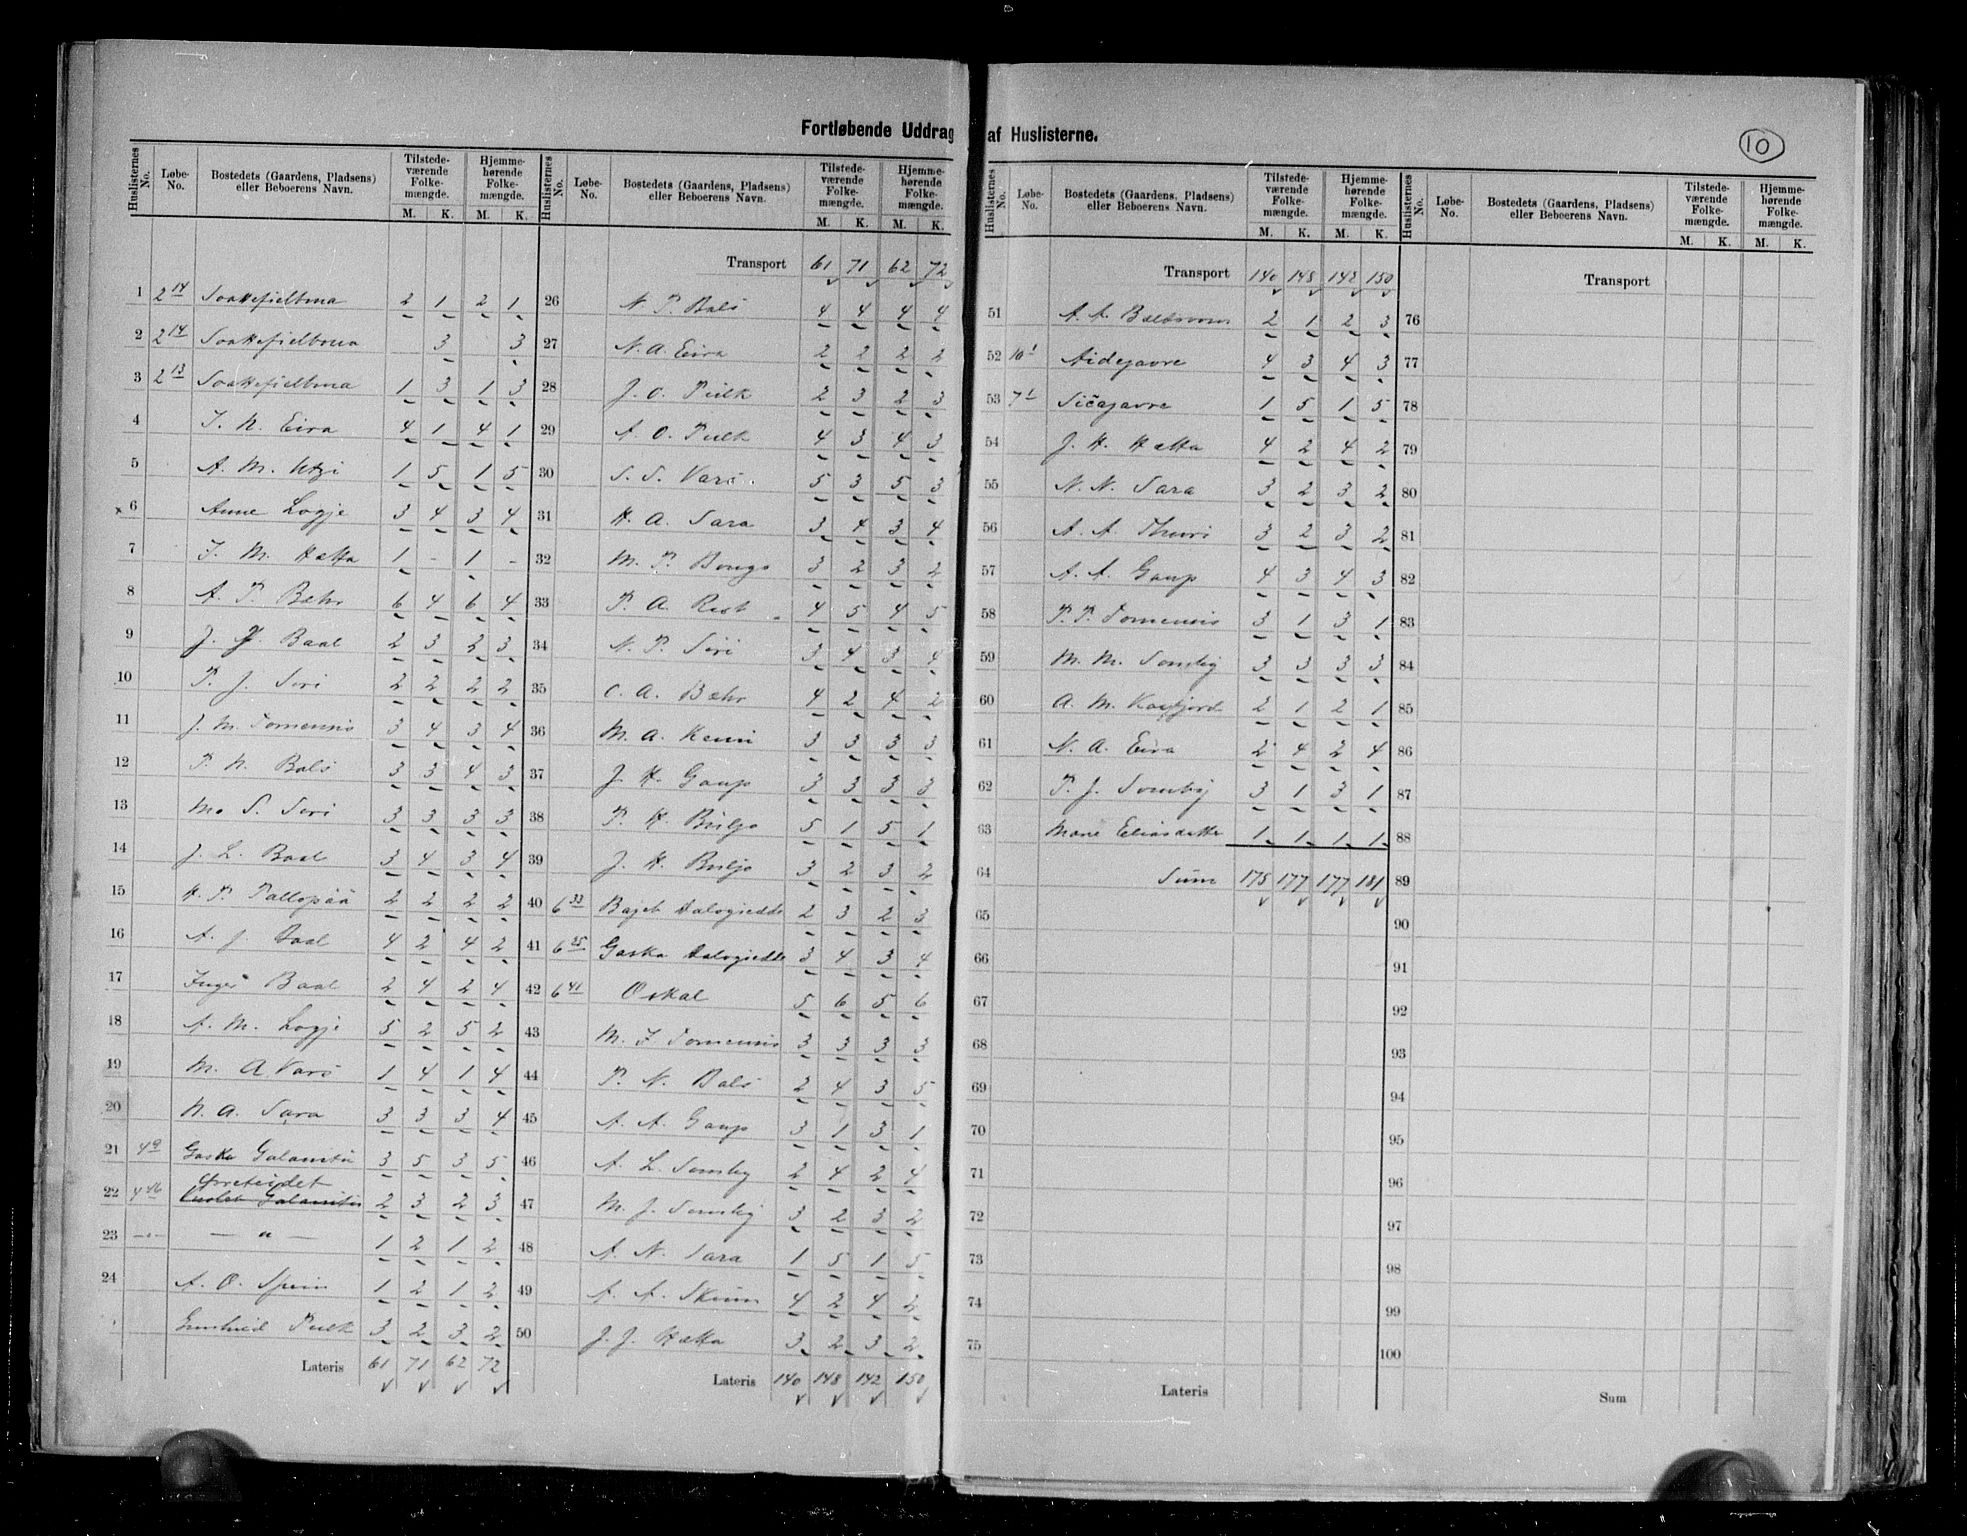 Fortløbende Uddrag af Huslisterne.
10
Huslisternes No. Løbe-No. Bostedets (Gaardens, Pladsens) eller Beboerens Navn. Tilstedeværende Folkemængde. M. K. Hjemmehørende Folkemængde. M. K.
1 2 14 Soattefieltma 2 1 2 1
2 2 14 Soattefieltma 3 3
3 2 13 Soattefieltma 1 3 1 3
4 I. N. Eira 4 1 4 1
5 A. M. Utzi 1 5 1 5
6 Anne Logje 3 4 3 4
7 I. M. Hætta 1 - 1 -
8 A. P. Bæhr 6 4 6 4
9 J. Baal 2 3 2 3
10 P. J. Siri 2 2 2 2
11 J. M. Tornensis 3 4 3 4
12 P. N. Bals 3 3 4 3
13 M. S. Siri 3 3 3 3
14 J. L. Baal 3 4 3 4
15 H. P. Pallopää 2 2 2 2
16 A. J. Baal 4 2 4 2
17 Inger Baal 2 4 2 4
18 A. M. Logje 5 2 5 2
19 M. A. Vars 1 4 1 4
20 N. A. Sara 3 3 3 4
21 4 9 Gaska Galanitu 3 5 3 5
Ørreteidet
22 4 46 Galanitu 2 3 2 3
23 — " — — " — 1 2 1 2
24 A. O. Spein 1 2 1 2
Gunhild Pulk 3 2 3 2
Lateris 61 71 62 72
Huslisternes No. Løbe-No. Bostedets (Gaardens, Pladsens) eller Beboerens Navn. Tilstedeværende Folkemængde. M. K. Hjemmehørende Folkemængde. M. K.
Transport 61 71 62 72
26 N. P. Bals 4 4 4 4
27 N. A. Eira 2 2 2 2
28 J. O. Pulk 2 3 2 3
29 A. O. Pulk 4 3 4 3
30 S. S. Vars. 5 3 5 3
31 H. A. Sara 3 4 3 4
32 M. P. Bongo 3 2 3 2
33 P. A. Rist 4 5 4 5
34 N. P. Siri 3 4 3 4
35 O. A. Bæhr 4 2 4 2
36 M. A. Kemi 3 3 3 3
37 J. H. Gaup 3 3 3 3
38 P. H. Buljo 5 1 5 1
39 J. H. Buljo 3 2 3 2
40 6 33 Bajet Halogiedde 2 3 2 3
41 6 25 Gaska Halogiedde 3 4 3 4
42 6 41 Oskal 5 6 5 6
43 M. I. Tornensis 3 3 3 3
44 P. N. Bals 2 4 3 5
45 A. A. Gaup 3 1 3 1
46 A. L. Somby 2 4 2 4
47 M. J. Somby 3 2 3 2
48 A. N. Sara 1 5 1 5
49 A. A. Skum 4 2 4 2
50 J. J. Hætta 3 2 3 2
Lateris 140 148 142 150
Huslisternes No. Løbe-No. Bostedets (Gaardens, Pladsens) eller Beboerens Navn. Tilstedeværende Folkemængde. M. K. Hjemmehørende Folkemængde. M. K.
Transport 140 148 142 150
51 A. A. 2 1 2 3
52 10 1 Aidejavre 4 3 4 3
53 7 1 Sičajavre 1 5 1 5
54 J. H. Hætta 4 2 4 2
55 N. N. Sara 3 2 3 2
56 A. A. Thuri 3 2 3 2
57 A. A. Gaup 4 3 4 3
58 P. P. Tornensis 3 1 3 1
59 M. M. Somby 3 3 3 3
60 A. M. Kaifjord 2 1 2 1
61 N. A. Eira 2 4 2 4
62 P. J. Somby 3 1 3 1
63 Marie Eliasdatte 1 1 1 1
64 Sum 175 177 177 181
65
66
67
68
69
70
71
72
73
74
75
Lateris
Huslisternes No. Løbe-No. Bostedets (Gaardens, Pladsens) eller Beboerens Navn. Tilstedeværende Folkemængde. M. K. Hjemmehørende Folkemængde. M. K.
Transport
76
77
78
79
80
81
82
83
84
85
86
87
88
89
90
91
92
93
94
95
96
97
98
99
100
Sum